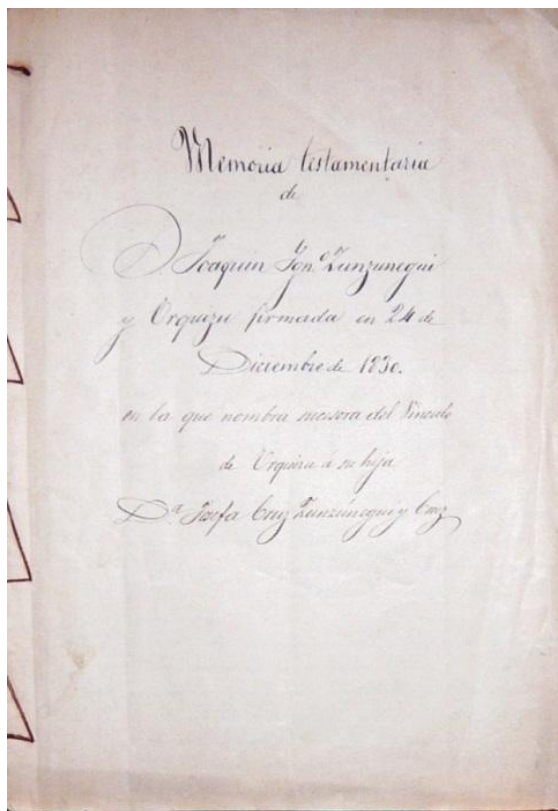 Memoria testamentaria
de
D. Joaquin Ign.º Zunzunegui
y Orquizu firmada en 24 de
Diciembre de 1830.
en la que nombra sucesora del Vínculo
de Urquizu á su hija
D.ª Josefa Cruz Zunzúnegui y Cruz